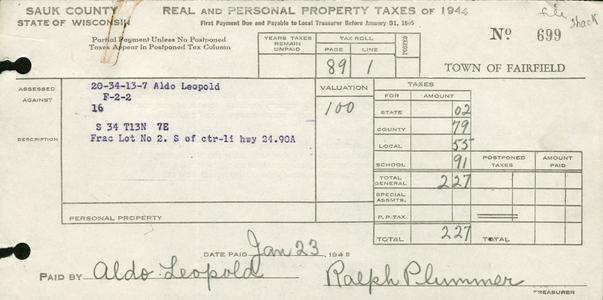 SAUK COUNTY REAL AND PERSONAL PROPERTY TAXES OF 1944
STATE OF WISCONSIN First Payment Due and Payable to Local Treasurer Before January 31, 1945
Shack
Partial Payment Unless No Postponed
Taxes Appear In Postponed Tax Column
YEARS TAXES REMAIN UNPAID
TAX ROLL
PAGE LINE
POSTED
89 1
No 699
TOWN OF FAIRFIELD
ASSESSED AGAINST
20-34-13-7 Aldo Leopold
F-2-2
16
DESCRIPTION
S 34 T13N 7E
Frac Lot No 2. S of ctr-li hwy 24.90A
PERSONAL PROPERTY
VALUATION
100
TAXES
FOR AMOUNT
STATE 02
COUNTY 79
LOCAL 55
SCHOOL 91
POSTPONED TAXES AMOUNT PAID
TOTAL GENERAL 2 27
SPECIAL ASSMTS.
P.P.TAX
TOTAL 2 27 TOTAL
DATE PAID Jan 23, 1945
PAID BY Aldo Leopold Ralph Plummer
TREASURER